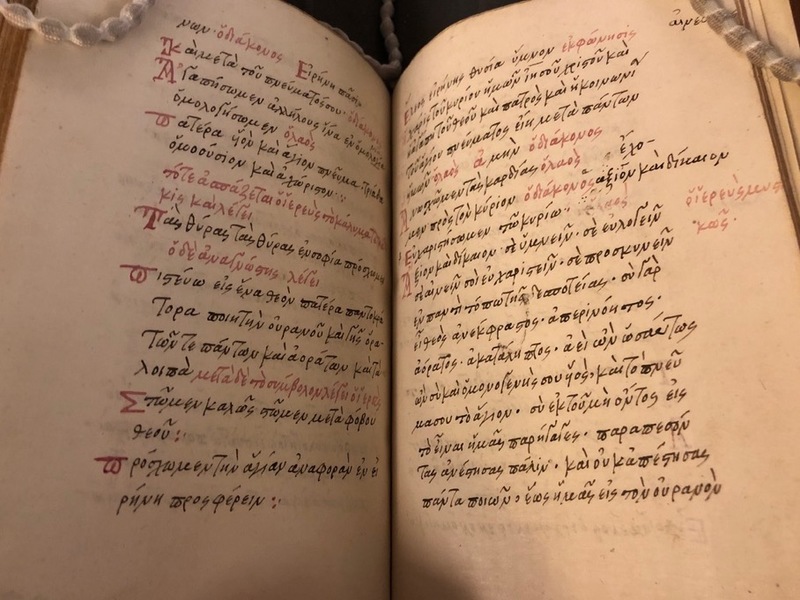 νων· ὁ διάκονος Εἰρήνη πᾶσιν
Καὶ μετὰ τοῦ πνεύματός σου· ὁ διάκονος
Ἀγαπήσωμεν ἀλλήλους ἵνα ἐν ὁμονοία
ὁμολογήσωμεν ὁ λαος
πατέρα υἱὸν καὶ ἅγιον πνεῦμα· Τριάδα
ὁμοούσιον καὶ ἀχώριστον:
τότε ἀσπάζεται ὁ ἱερεὺς τὸ κάλυμμα τοῦ
κὶς καὶ λέγει
Τὰς θύρας τὰς θύρας ἐν σοφία πρόσχωμεν
ὁ δὲ ἀναγνώστης λέγει
Πιστεύω εἰς ἕνα θεὸν πατέρα παντοκρά
τορα ποιητὴν οὐρανοῦ καὶ γῆς ὁρα
τῶν τε πάντων καὶ ἀοράτων καὶ τὰ
λοιπὰ μετὰ δὲ τὸ σύμβολον λέγει ὁ ἱερεὺς
Στῶμεν καλῶς στῶμεν μετὰ φόβου
θεοῦ:
πρόσχωμεν τὴν ἁγίαν ἀναφορὰν ἐν εἰ
ρήνη προσφέρειν:
Ἔλεος εἰρήνης θυσία ὕμνον ἐκφώνησις
χάρις τοῦ κυρίου ἡμῶν ἰησοῦ χριστοῦ καὶ
τοῦ θεοῦ καὶ πατρὸς καὶ ἡ κοινωνί
τοῦ ἁγίου πνεύματος εἴη μετὰ πάντων
ὑμῶν ὁ λαος ἀμὴν ὁ διάκονος
σχωμεν τὰς καρδίας ὁ λαος ἔχο-
μεν πρὸς τὸν κύριον ὁ διάκονος ἄξιον καὶ δίκαιον
Εὐχαριστήσωμεν τῶ κυρίω· ὁ λαος ὁ ἱερεὺς
Ἄξιον καὶ δίκαιον· σὲ ὑμνεῖν· σὲ εὐλογεῖν
σὲ αἰνεῖν σοὶ εὐχαριστεῖν· σὲ προσκυνεῖν
ἐν παντὶ τόπω τῆς δεσποτείας· σὺ γὰρ
εἶ θεὸς ἀνέκφραστος· ἀπερινόητος·
ἀόρατος· ἀκατάληπτος· ἀεὶ ὢν ὡσαύτως
ὢν σὺ καὶ ὁ μονογενής σου υἱὸς· καὶ τὸ πνεῦ
μα σου τὸ ἅγιον· σὺ ἐκ τοῦ μὴ ὄντος εἰς
τὸ εἶναι ἡμᾶς παρήγαγες· παραπεσόν
τας ἀνέστησας πάλιν· καὶ οὐκ ἀπέστησας
πάντα ποιῶν· ἕως ἡμᾶς εἰς τὸν οὐρανὸν